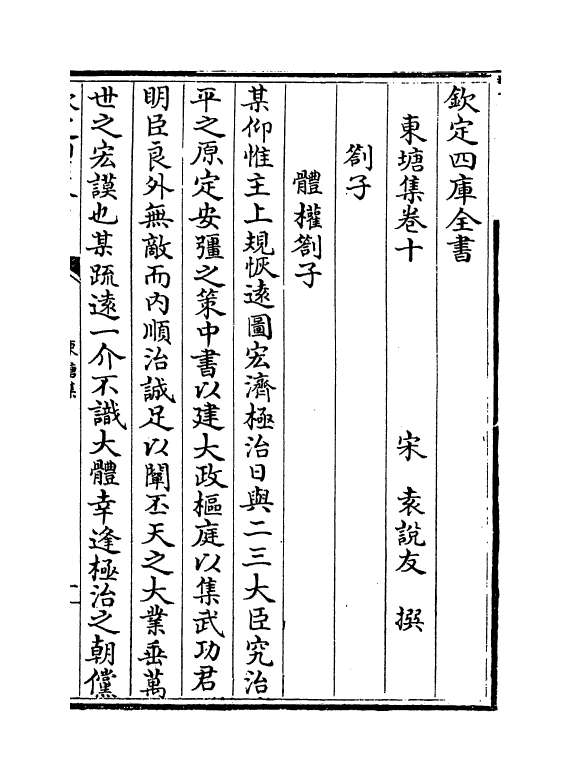 欽定四庫全書
東塘集卷十　宋　袁說友　撰
劄子
體權劄子
某仰惟主上規恢遠圖宏濟極治日與二三大臣究治
平之原定安彊之策中書以建大政樞庭以集武功君
明臣良外無敵而內順治誠足以闡丕天之大業垂萬
世之宏謨也某疏遠一介不識大體幸逢極治之朝儻
東塘集